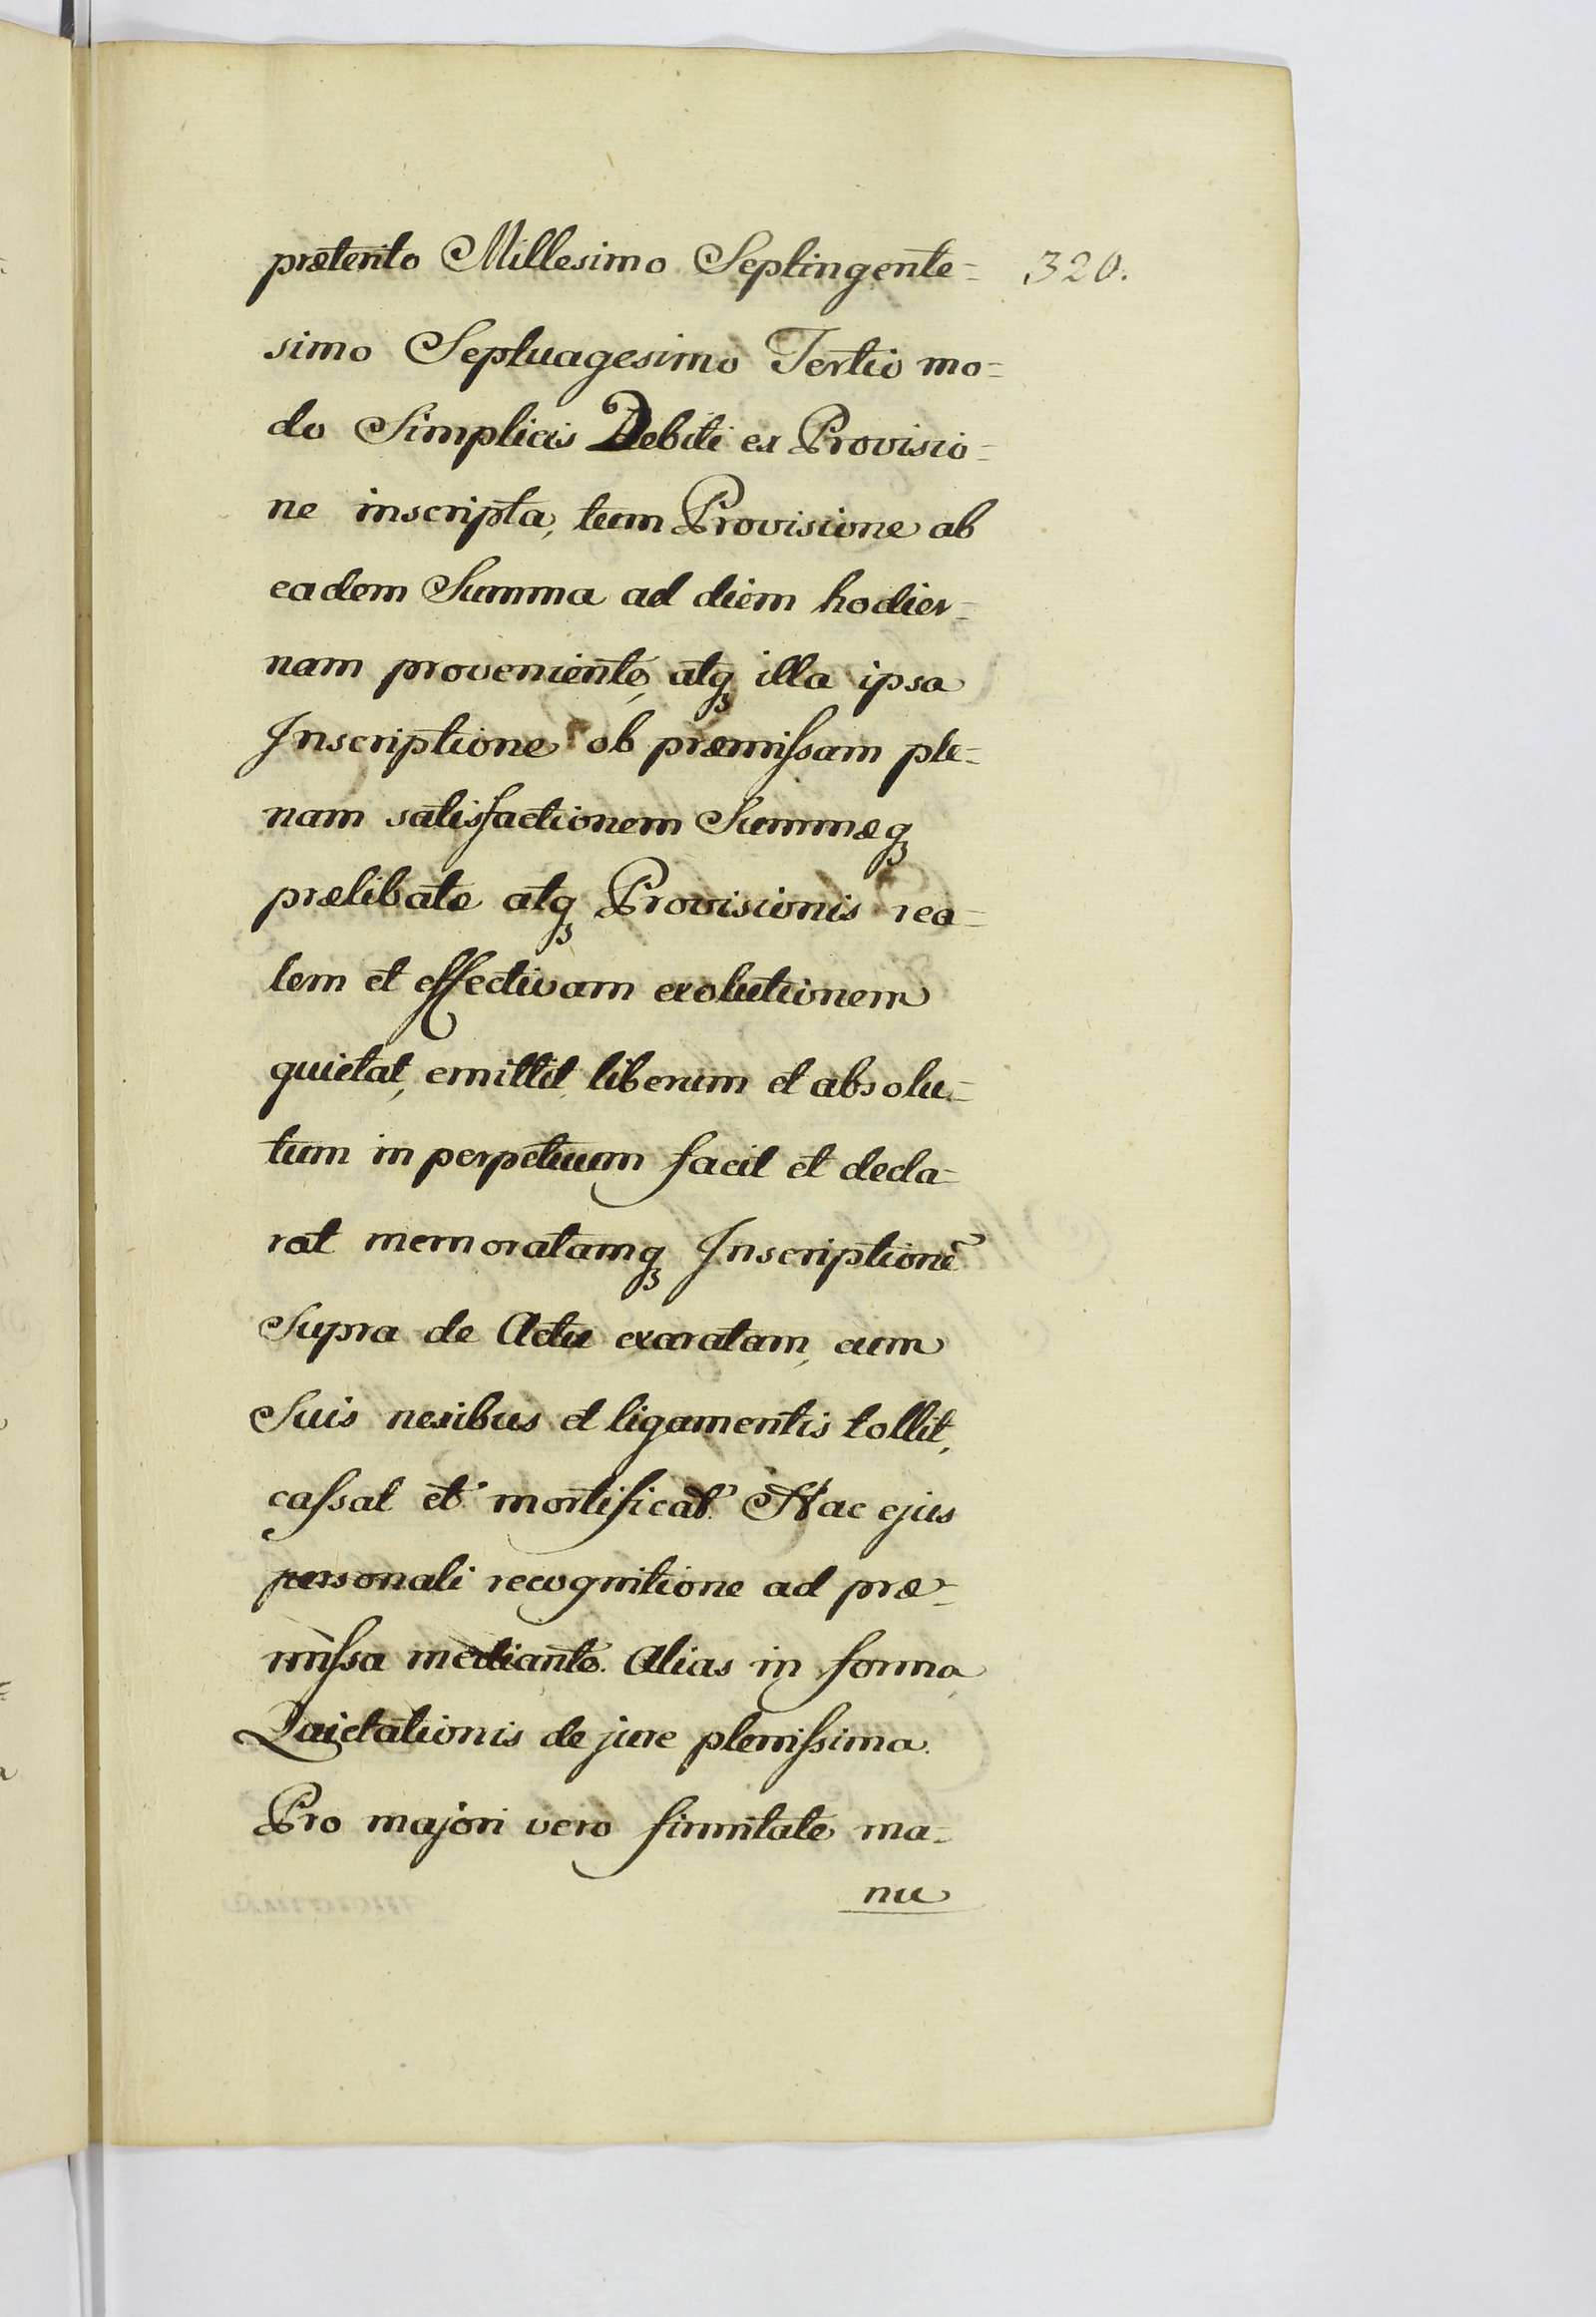 præterito Millesimo Septingente= 320.
simo Septuagesimo Tertio mo=
do Simplicis Debiti ex Provisio=
ne inscripta, tum Provisione ab
eadem Summa ad diem hodier=
nam proveniente, atqꝫ illa ipsa
Inscriptione ob præmißam ple=
nam satisfactionem Summæqꝫ
prælibatæ atqꝫ Provisionis rea=
lem et effectivam exolutionem
quietat, emittit liberum et absolu=
tum in perpetuum facit et decla=
rat memoratamqꝫ Inscriptionē
Supra de Actu exaratam, cum
Suis nexibus et ligamentis tollit,
caßat et mortificat. Hac ejus
personali recognitione ad præ=
mißa mediante. Alias in forma
Quietationis de jure plenißima.
Pro majori vero firmitate ma=
nu